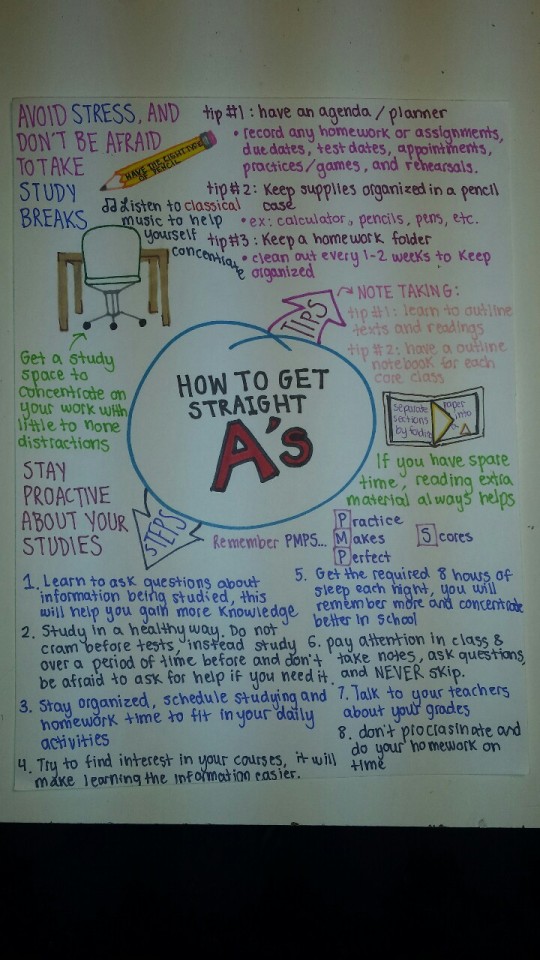 AVOID STRESS, AND
DON'T BE AFRAID
TO TAKE
STUDY
BREAKS
HAVE THE RIGHT TYPE
OF PENCIL
♫ Listen to classical
music to help
yourself
concentrate
tip #1: have an agenda / planner
• record any homework or assignments,
due dates, test dates, appointments,
practices/games, and rehearsals.
tip #2: Keep supplies organized in a pencil
case
• ex: calculator, pencils, pens, etc.
tip #3: Keep a homework folder
• clean out every 1-2 weeks to keep
organized
TIPS
NOTE TAKING:
tip #1: learn to outline
texts and readings
tip #2: have a outline
notebook for each
core class
separate
sections
by folding
paper
into
a
Get a study
space to
concentrate on
your work with
little to none
distractions
HOW TO GET
STRAIGHT
A's
If you have spare
time, reading extra
material always helps
STAY
PROACTIVE
ABOUT YOUR
STUDIES
STEPS
Remember PMPS...
Practice
Makes
Perfect
Scores
1. Learn to ask questions about
information being studied, this
will help you gain more knowledge
2. Study in a healthy way. Do not
cram before tests, instead study
over a period of time before and don't
be afraid to ask for help if you need it.
3. Stay organized, schedule studying and
homework time to fit in your daily
activities
4. Try to find interest in your courses, it will
make learning the information easier.
5. Get the required 8 hours of
sleep each night, you will
remember more and concentrate
better in school
6. pay attention in class &
take notes, ask questions,
and NEVER skip.
7. Talk to your teachers
about your grades
8. don't procrasinate and
do your homework on
time